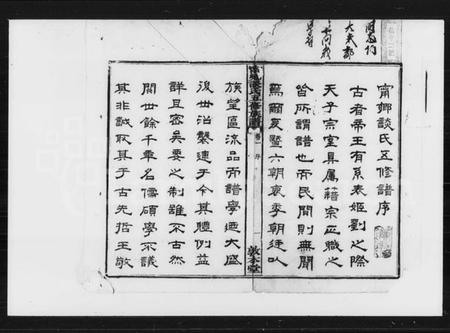 甯鄉談氏五修譜序
古者帝王有系表姬劉之際
天子宗室具屬籍宗正職之
皆所謂譜也而民間則無聞
焉爾及暨六朝衰季朝徒以
族望區流品而譜學迺大盛
後世沿襲逮于今其體例益
詳且密矣要之制雖不古然
閱世餘千年名儒碩學不議
其非誠取其于古先哲王敬
卷一 序
敦本堂